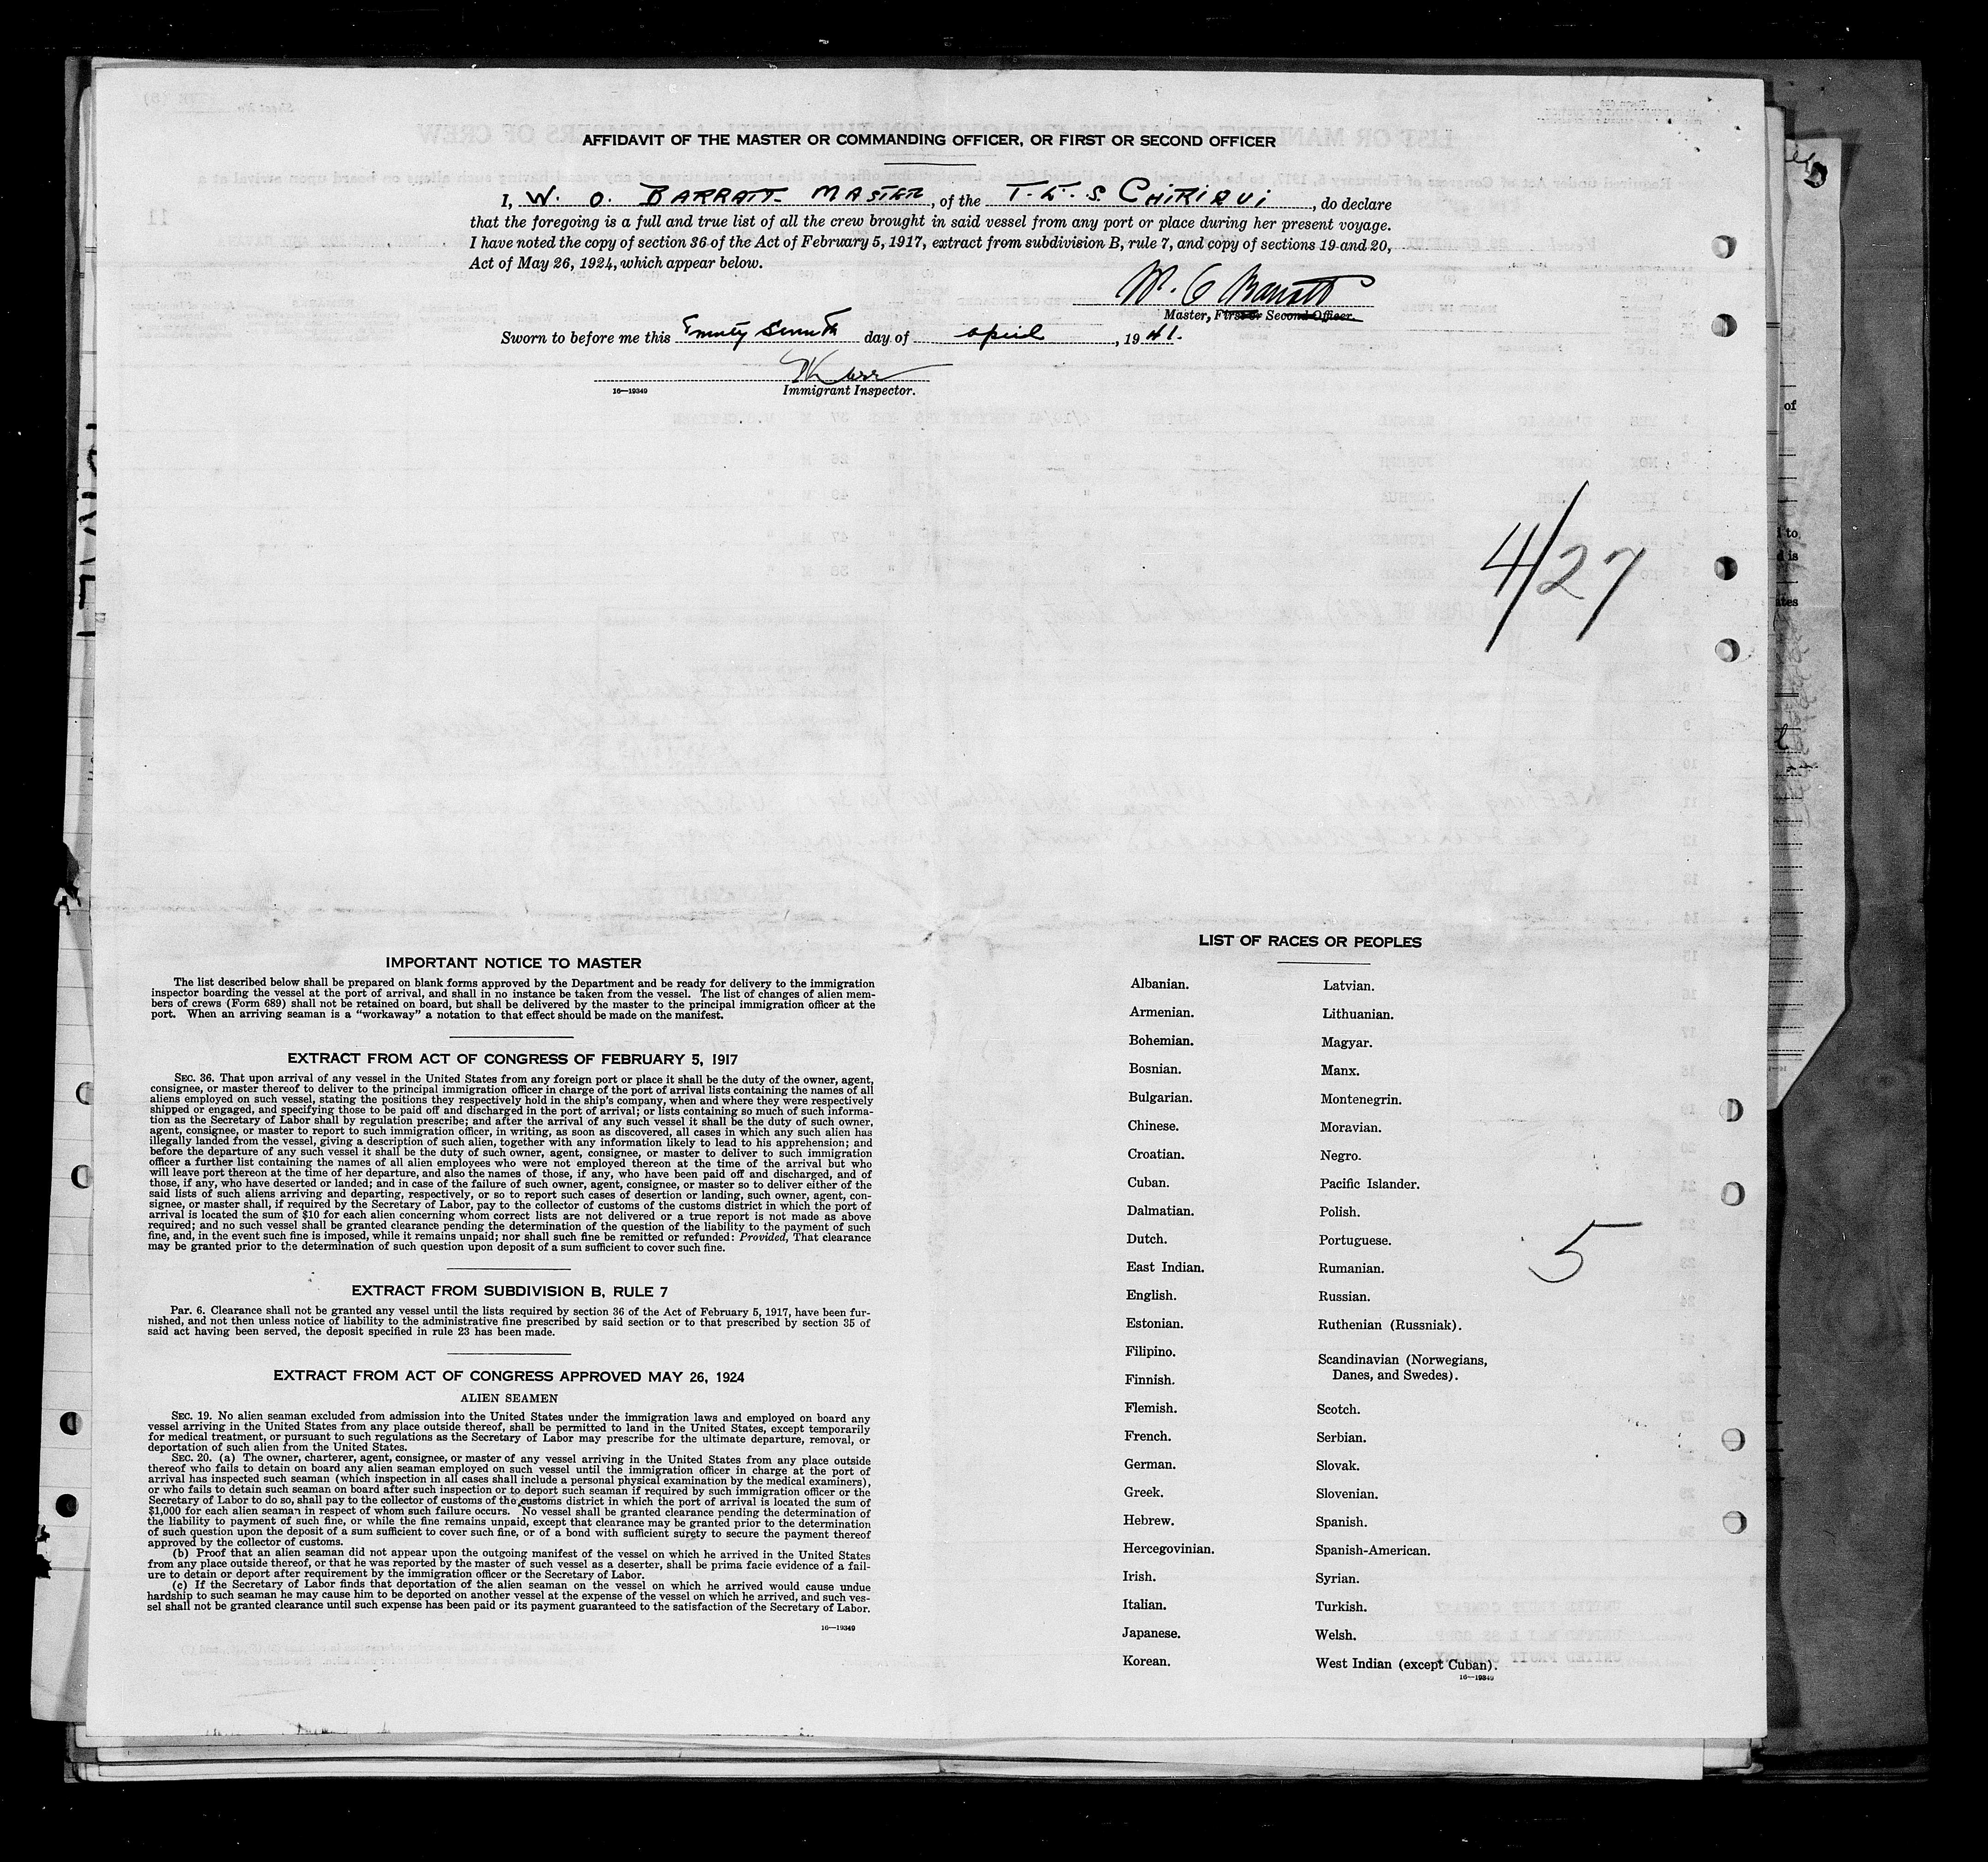 AFFIDAVIT OF THE MASTER OR COMMANDING OFFICER, OR FIRST OR SECOND OFFICER
I, W. O. BARRATT MASTER, of the T.E.S. CHIRIQUI, do declare
that the foregoing is a full and true list of all the crew brought in said vessel from any port or place during her present voyage.
I have noted the copy of section 36 of the Act of February 5, 1917, extract from subdivision B, rule 7, and copy of sections 19 and 20,
Act of May 26, 1924, which appear below.
W. O Barratt
Master, First or Second Officer.
Sworn to before me this Twenty Seventh day of April, 19 41.
Immigrant Inspector.
16—19349
4/27
IMPORTANT NOTICE TO MASTER
The list described below shall be prepared on blank forms approved by the Department and be ready for delivery to the immigration
inspector boarding the vessel at the port of arrival, and shall in no instance be taken from the vessel. The list of changes of alien mem-
bers of crews (Form 689) shall not be retained on board, but shall be delivered by the master to the principal immigration officer at the
port. When an arriving seaman is a "workaway" a notation to that effect should be made on the manifest.
EXTRACT FROM ACT OF CONGRESS OF FEBRUARY 5, 1917
SEC. 36. That upon arrival of any vessel in the United States from any foreign port or place it shall be the duty of the owner, agent,
consignee, or master thereof to deliver to the principal immigration officer in charge of the port of arrival lists containing the names of all
aliens employed on such vessel, stating the positions they respectively hold in the ship's company, when and where they were respectively
shipped or engaged, and specifying those to be paid off and discharged in the port of arrival; or lists containing so much of such informa-
tion as the Secretary of Labor shall by regulation prescribe; and after the arrival of any such vessel it shall be the duty of such owner,
agent, consignee, or master to report to such immigration officer, in writing, as soon as discovered, all cases in which any such alien has
illegally landed from the vessel, giving a description of such alien, together with any information likely to lead to his apprehension; and
before the departure of any such vessel it shall be the duty of such owner, agent, consignee, or master to deliver to such immigration
officer a further list containing the names of all alien employees who were not employed thereon at the time of the arrival but who
will leave port thereon at the time of her departure, and also the names of those, if any, who have been paid off and discharged, and of
those, if any, who have deserted or landed; and in case of the failure of such owner, agent, consignee, or master so to deliver either of the
said lists of such aliens arriving and departing, respectively, or so to report such cases of desertion or landing, such owner, agent, con-
signee, or master shall, if required by the Secretary of Labor, pay to the collector of customs of the customs district in which the port of
arrival is located the sum of $10 for each alien concerning whom correct lists are not delivered or a true report is not made as above
required; and no such vessel shall be granted clearance pending the determination of the question of the liability to the payment of such
fine, and, in the event such fine is imposed, while it remains unpaid; nor shall such fine be remitted or refunded: Provided, That clearance
may be granted prior to the determination of such question upon deposit of a sum sufficient to cover such fine.
EXTRACT FROM SUBDIVISION B, RULE 7
Par. 6. Clearance shall not be granted any vessel until the lists required by section 36 of the Act of February 5, 1917, have been fur-
nished, and not then unless notice of liability to the administrative fine prescribed by said section or to that prescribed by section 35 of
said act having been served, the deposit specified in rule 23 has been made.
EXTRACT FROM ACT OF CONGRESS APPROVED MAY 26, 1924
ALIEN SEAMEN
SEC. 19. No alien seaman excluded from admission into the United States under the immigration laws and employed on board any
vessel arriving in the United States from any place outside thereof, shall be permitted to land in the United States, except temporarily
for medical treatment, or pursuant to such regulations as the Secretary of Labor may prescribe for the ultimate departure, removal, or
deportation of such alien from the United States.
SEC. 20. (a) The owner, charterer, agent, consignee, or master of any vessel arriving in the United States from any place outside
thereof who fails to detain on board any alien seaman employed on such vessel until the immigration officer in charge at the port of
arrival has inspected such seaman (which inspection in all cases shall include a personal physical examination by the medical examiners),
or who fails to detain such seaman on board after such inspection or to deport such seaman if required by such immigration officer or the
Secretary of Labor to do so, shall pay to the collector of customs of the customs district in which the port of arrival is located the sum of
$1,000 for each alien seaman in respect of whom such failure occurs. No vessel shall be granted clearance pending the determination of
the liability to payment of such fine, or while the fine remains unpaid, except that clearance may be granted prior to the determination
of such question upon the deposit of a sum sufficient to cover such fine, or of a bond with sufficient surety to secure the payment thereof
approved by the collector of customs.
(b) Proof that an alien seaman did not appear upon the outgoing manifest of the vessel on which he arrived in the United States
from any place outside thereof, or that he was reported by the master of such vessel as a deserter, shall be prima facie evidence of a fail-
ure to detain or deport after requirement by the immigration officer or the Secretary of Labor.
(c) If the Secretary of Labor finds that deportation of the alien seaman on the vessel on which he arrived would cause undue
hardship to such seaman he may cause him to be deported on another vessel at the expense of the vessel on which he arrived, and such ves-
sel shall not be granted clearance until such expense has been paid or its payment guaranteed to the satisfaction of the Secretary of Labor.
16—19349
LIST OF RACES OR PEOPLES
Albanian.
Armenian.
Bohemian.
Bosnian.
Bulgarian.
Chinese.
Croatian.
Cuban.
Dalmatian.
Dutch.
East Indian.
English.
Estonian.
Filipino.
Finnish.
Flemish.
French.
German.
Greek.
Hebrew.
Hercegovinian.
Irish.
Italian.
Japanese.
Korean.
Latvian.
Lithuanian.
Magyar.
Manx.
Montenegrin.
Moravian.
Negro.
Pacific Islander.
Polish.
Portuguese.
Rumanian.
Russian.
Ruthenian (Russniak).
Scandinavian (Norwegians,
Danes, and Swedes).
Scotch.
Serbian.
Slovak.
Slovenian.
Spanish.
Spanish-American.
Syrian.
Turkish.
Welsh.
West Indian (except Cuban).
16—19349
5